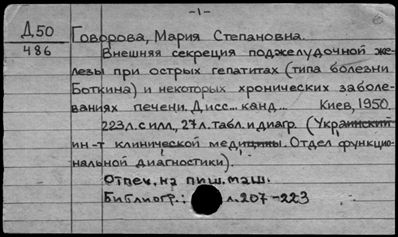 -1-
Д50
486
Говорова, Мария Степановна.
Внешняя секреция поджелудочной же-
лезы при острых гепатитах (типа болезни
Боткина) и некоторых хронических заболе-
ваниях печени. Дисс... канд... Киев, 1950.
223л. с илл., 27л. табл. и диагр. (Украинский
ин-т клинической медицины. Отдел функцио-
нальной диагностики).
Отпеч. на пиш. маш.
Библиогр.: л. 207-223